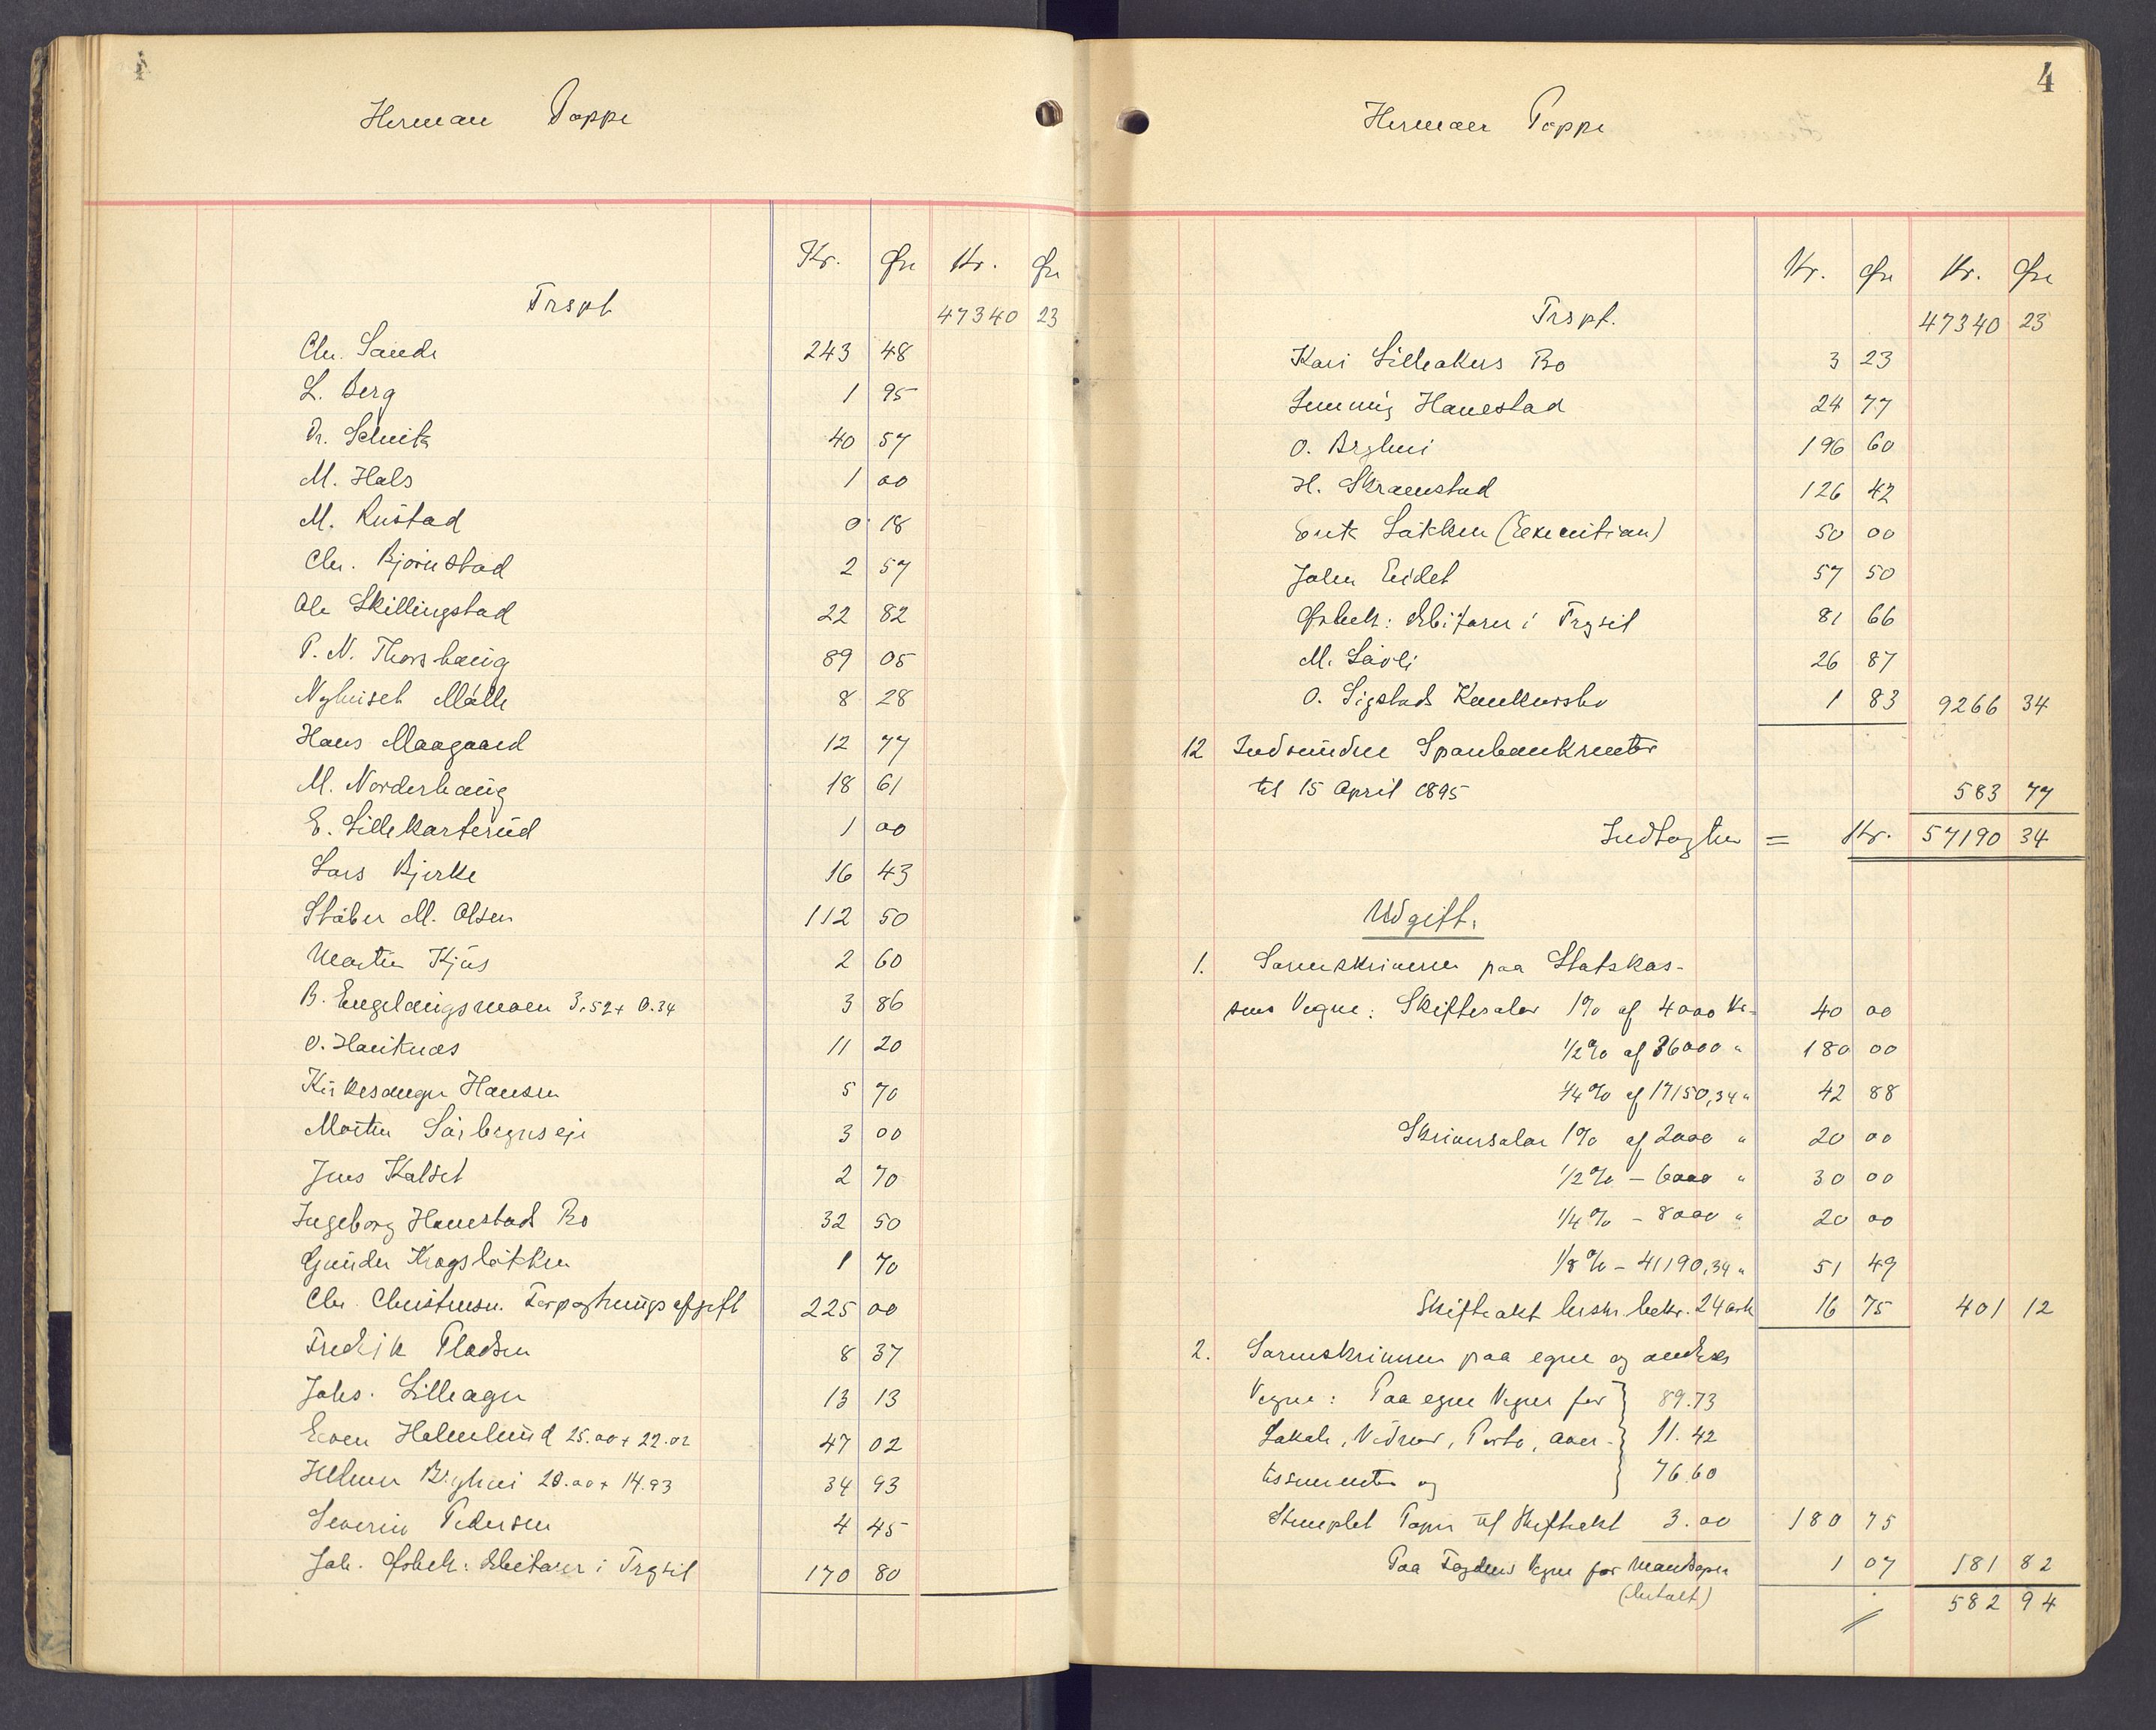 Herman Poppe
Kr. Øre Kr. Øre
Trspt 47340 23
Chr. Sande 243 48
L. Berg 1 95
Dr. Schnitz 40 57
M. Hals 1 00
M. Rustad 0 18
Chr. Bjørnstad 2 57
Ole Skillingstad 22 82
P. N. Thorshaug 89 05
Nyhuset Mølle 8 28
Hans Maagaard 12 77
M. Norderhaug 18 61
E. Lillekarterud 1 00
Lars Bjerke 16 43
Støber M. Olsen 112 50
Martin Kjøs 2 60
B. Engelaugsmoen 3.52 + 0.34 3 86
O. Hauknæs 11 20
Kirkesanger Hansen 5 70
Morten Sörbergseje 3 00
Jens Kalset 2 70
Ingeborg Hanestads Bo 32 50
Gunder Krogsløkken 1 70
Chr. Christensen. Forpagtningsafgift 225 00
Fredrik Pladsen 8 37
Johs. Lilleager 13 13
Even Holmlund 25.00 + 22.02 47 02
Helmer Bryhni 20.00 + 14.93 34 93
Severin Pedersen 4 45
Joh. Østbek: debitorer i Trysil 170 80
4
Herman Poppe
Kr. Øre Kr. Øre
Trspt. 47340 23
Kari Lilleakers Bo 3 23
Lemmig Hanestad 24 77
O. Bryhni 196 60
H. Skramstad 126 42
Erik Løkken (Execution) 50 00
John Eidet 57 50
Østbek: debitorer i Trysil 81 66
M. Løvli 26 87
O. Sigstads Konkursbo 1 83 9266 34
12 Indvundne Sparebankrenter
til 15 April 1895 583 77
Indtægter = Kr. 57190 34
Udgift.
1. Sorenskriveren paa Statskas-
sens Vegne: Skiftesalær 1% af 4000 Kr. 40 00
1/2% af 36000 " 180 00
1/4% af 17150,34 " 42 88
Skriversalær 1% af 2000 " 20 00
1/2% - 6000 " 30 00
1/4% - 8000 " 20 00
1/8% - 41190,34 " 51 49
Skifteakt beskr. bekr. 24 ark 16 75 401 12
2. Sorenskriveren paa egne og andres
Vegne: Paa egne Vegne for } 89.73
Lokale, Vidner, Porto, aver- } 11.42
tissementer og } 76.60
Stemplet Papir til Skifteakt 3.00 180 75
Paa Fogdens Vegne for Mandtaper 1 07 181 82
(betalt)
582 94